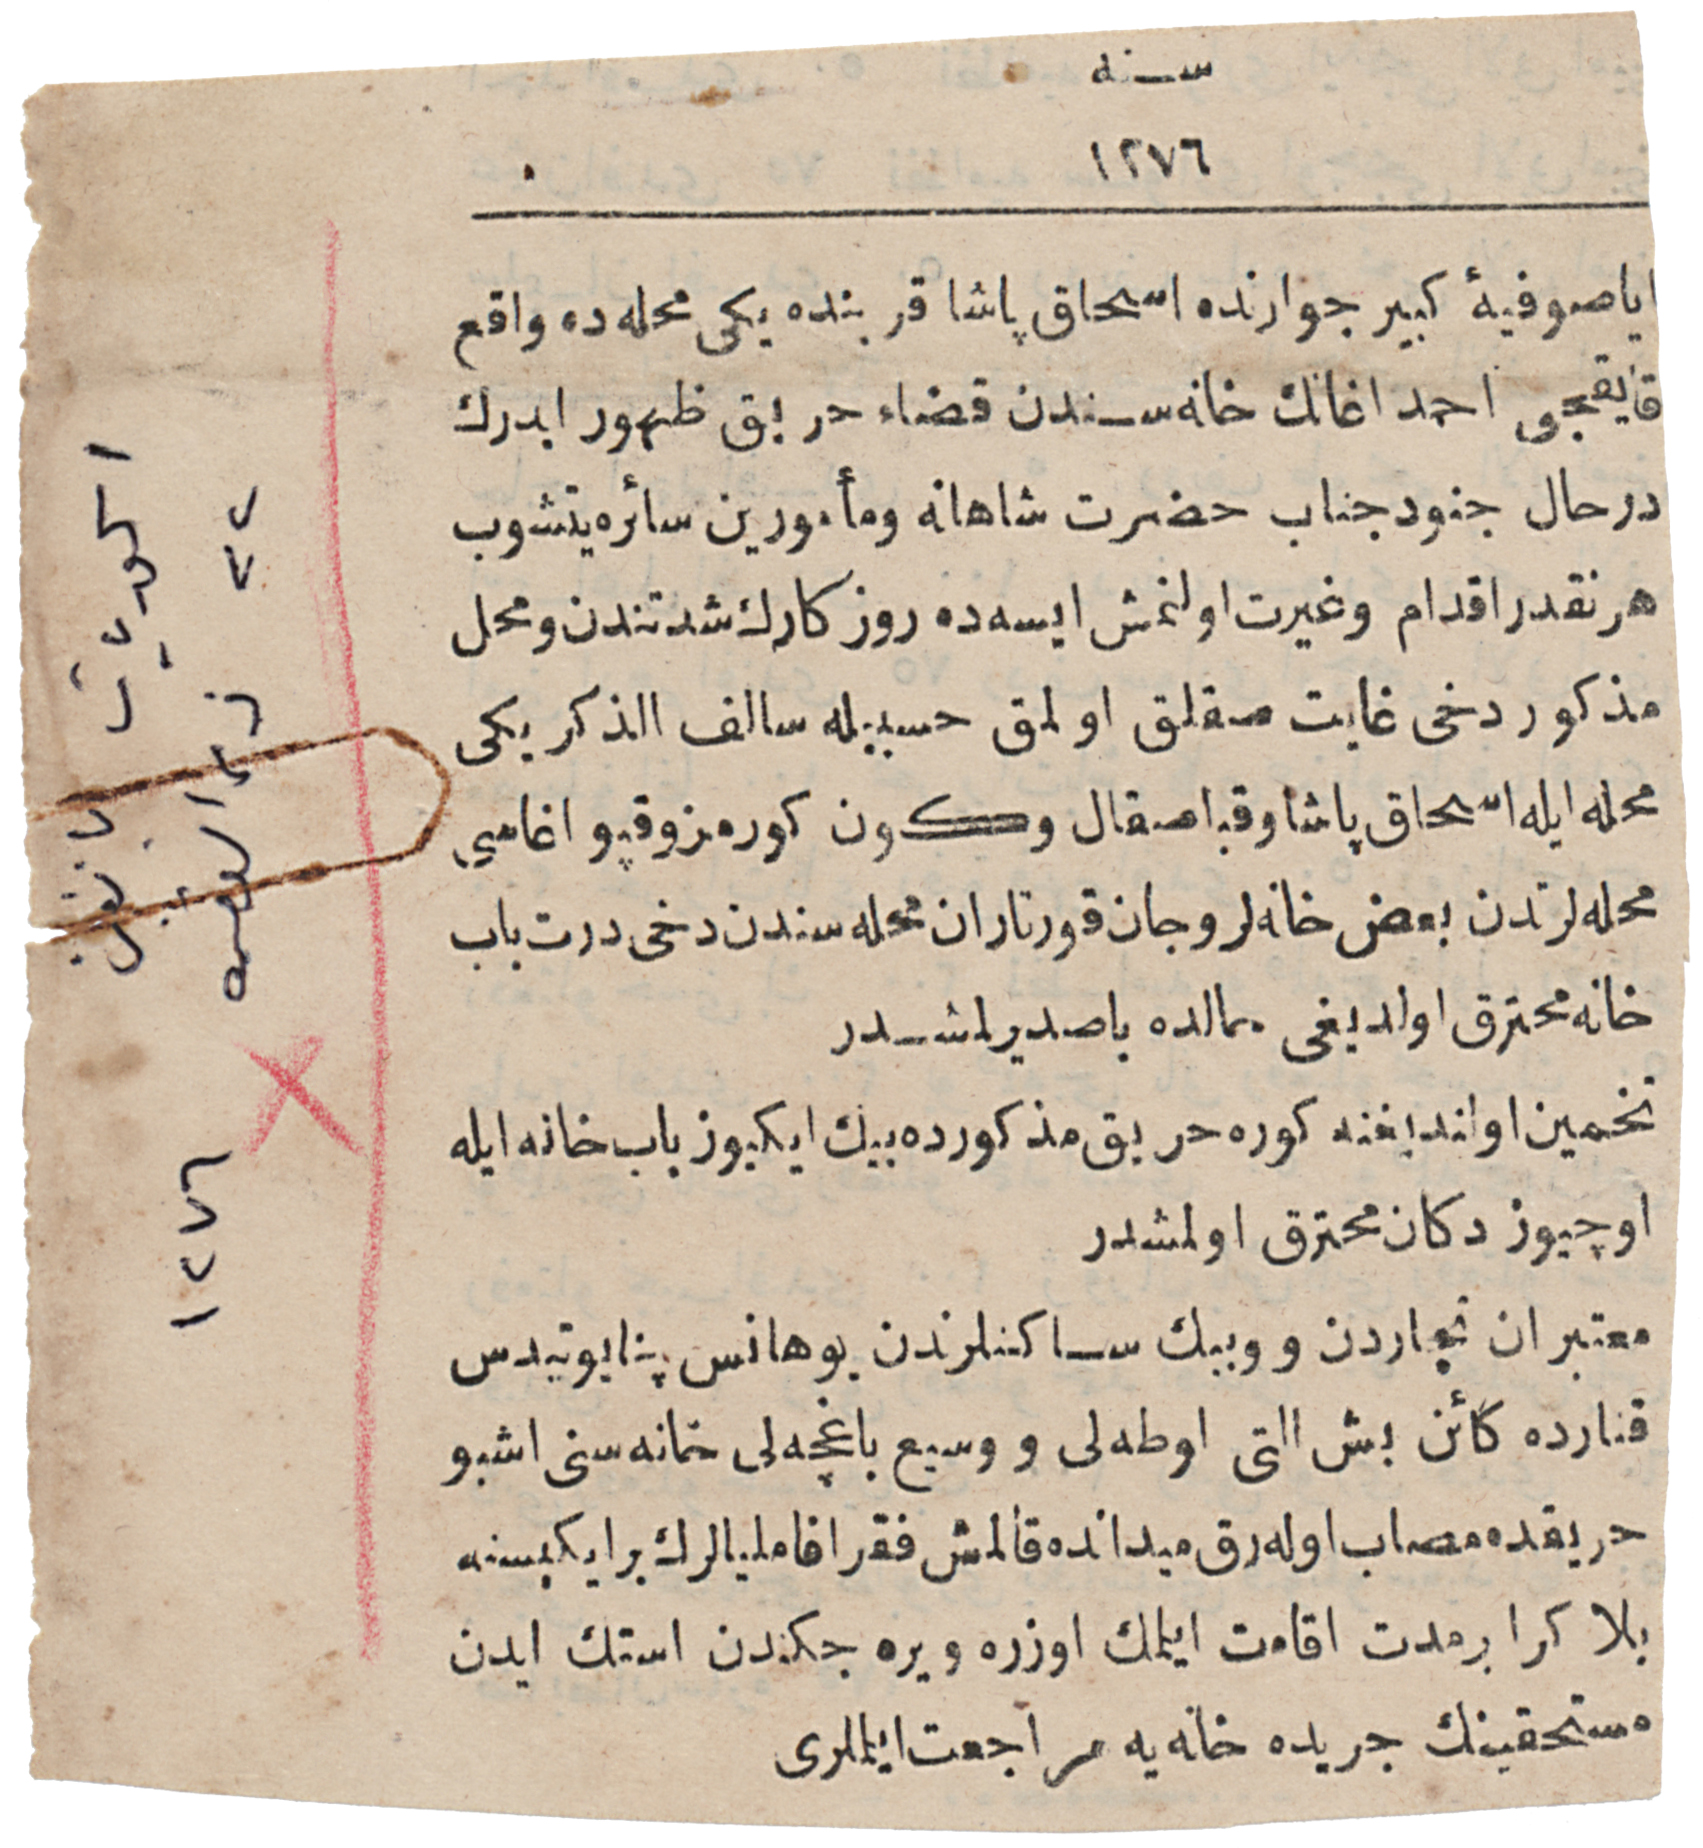 سنه
١٢٧٦
اياصوفيۀ كبير جوارنده اسحاق پاشا قربنده يكى محله ده واقع
قايقجى احمد اغانك خانه سندن قضاء حريق ظهور ايدرك
درحال جنود جناب حضرت شاهانه ومأمورين سائره يتشوب
هر نقدر اقدام وغيرت اولنمش ايسه ده روزكارك شدتندن ومحل
مذكور دخى غايت صقلق اولمق حسبيله سالف الذكر يكى
محله ايله اسحاق پاشا وقبا صقال وكون كورمز وقپو اغاسى
محله لرندن بعض خانه لر وجان قورتاران محله سندن دخى درت باب
خانه محترق اولديغى حالده باصديرلمشدر
تخمين اولنديغنه كوره حريق مذكورده بيك ايكيوز باب خانه ايله
اوچيوز دكان محترق اولمشدر
معتبران تجاردن و وبيك ساكنلرندن يوهانس پنايوتيدس
قنارده كائن بش التى اوطه لى و وسيع باغچه لى خانه سنى اشبو
حريقده مصاب اوله رق ميدانده قالمش فقرا فاميليالرك بر ايكيسنه
بلا كرا برمدت اقامت ايلمك اوزره ويره جكندن استك ايدن
مستحقينك جريده خانه يه مراجعت ايلملرى
٢٧
١٢٧٦